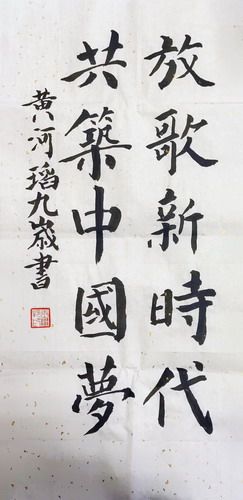 放歌新時代
共築中國夢
黄河瑫九歲書